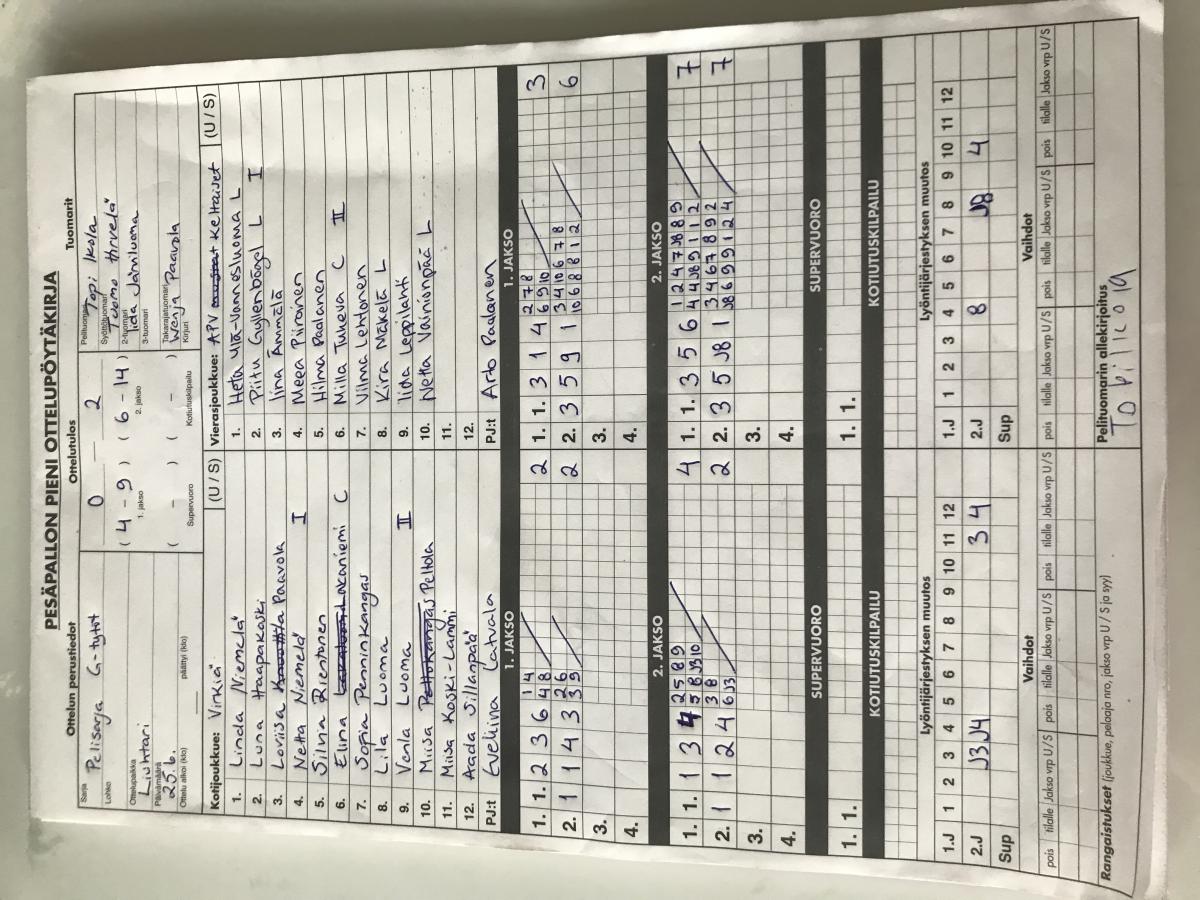 PESÄPALLON PIENI OTTELUPÖYTÄKIRJA
Ottelun perustiedot
Sarja Pelisarja G-tytöt
Lohko
Ottelupaikka Liuhtari
Päivämäärä 25.6.
Ottelu alkoi (klo) päättyi (klo)
Ottelutulos
0 — 2
( 4 - 9 ) ( 6 - 14 )
1. jakso 2. jakso
( - ) ( - )
Supervuoro Kotiutuskilpailu
Tuomarit
Pelituomari Topi Ikola
Syöttötuomari Tuomo
2-tuomari Iida Jämiluoma
3-tuomari
Takarajatuomari
Kirjuri Wenja Paavola
Kotijoukkue: Virkiä (U / S)
1. Linda Niemelä
2. Luna Haapakoski
3. Loviisa Paavola
4. Netta Niemelä I
5. Silvia Rientonen
6. Elina Akaniemi C
7. Sofia Penninkangas
8. Lila Luoma
9. Venla Luoma II
10. Miisa Peltola
11. Miisa Koski-Lammi
12. Aada Sillanpää
PJ:t Eveliina Latvala
Vierasjoukkue: APV Keltaiset (U / S)
1. Heta Ylä-Vannesluoma L
2. Piitu Gyllenbögel L I
3. Iina Ämmälä
4. Meea Piiroinen
5. Hilma Paalanen
6. Milla Tukeva C II
7. Vilma Lehtonen
8. Kira Mäkelä L
9. Iida Leppilahti
10. Netta Väinionpää L
11.
12.
PJ:t Arto Paalanen
1. JAKSO
1. 1. 2 3 6 4 1 4 8 2
2. 1 1 4 3 2 6 3 9 2
3.
4.
1. JAKSO
1. 1. 3 1 4 2 7 8 6 9 10 3
2. 3 5 9 1 3 4 10 6 7 8 10 6 8 8 1 2 6
3.
4.
2. JAKSO
1. 1. 1 3 4 2 5 8 9 5 8 J3 10 4
2. 1 2 4 3 8 6 J3 2
3.
4.
2. JAKSO
1. 1. 3 5 6 1 2 4 7 J8 8 9 4 4 J8 9 1 1 2 7
2. 3 5 J8 1 3 4 6 7 8 9 2 J8 6 9 9 1 2 4 7
3.
4.
SUPERVUORO
1. 1.
SUPERVUORO
1. 1.
KOTIUTUSKILPAILU
KOTIUTUSKILPAILU
Lyöntijärjestyksen muutos
1.J 1 2 3 4 5 6 7 8 9 10 11 12
2.J J3 J4 3 4
Sup
Lyöntijärjestyksen muutos
1.J 1 2 3 4 5 6 7 8 9 10 11 12
2.J 8 J8 4
Sup
Vaihdot
pois tilalle Jakso vrp U/S pois tilalle Jakso vrp U/S pois tilalle Jakso vrp U/S
Vaihdot
pois tilalle Jakso vrp U/S pois tilalle Jakso vrp U/S pois tilalle Jakso vrp U/S
Rangaistukset (joukkue, pelaaja nro, jakso vrp U / S ja syy)
Pelituomarin allekirjoitus